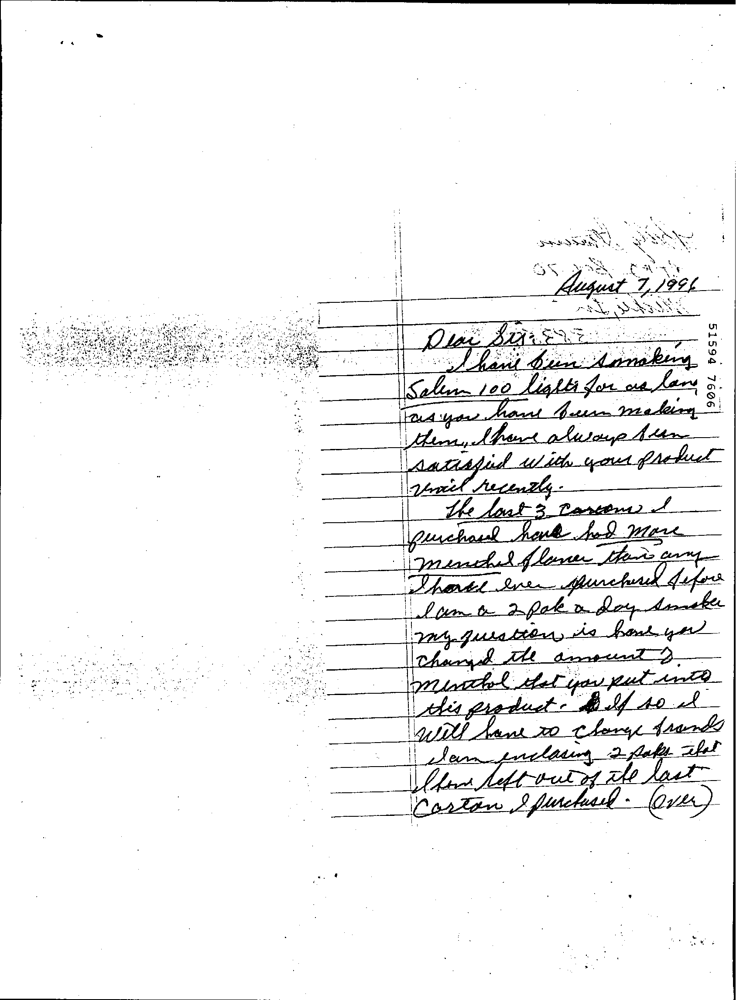 August 7, 1996
Dear Sir:
I have been smoking
Salem 100 lights for as long
as you have been making
them, I have always been
satisfied with your product
until recently.
The last 3 cartons I
purchased have had more
menthol flavor than any
I have ever purchased before
I am a 2 pak a day smoker
my question is have you
changed the amount of
menthol that you put into
this product. If so I
will have to change brands
I am enclosing 2 paks that
I have left out of the last
carton I purchased. (Over)
51594 7606